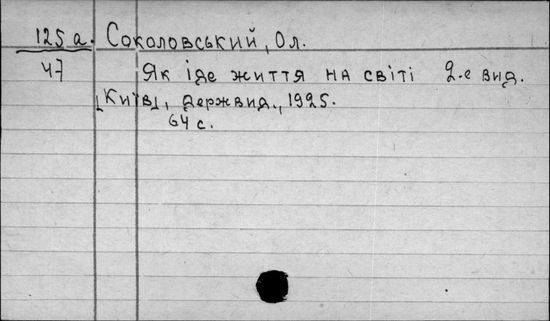 125 а. Соколовський, Ол.
47 Як іде життя на світі 2-е вид.
[Київ], Держвид., 1925.
64 с.